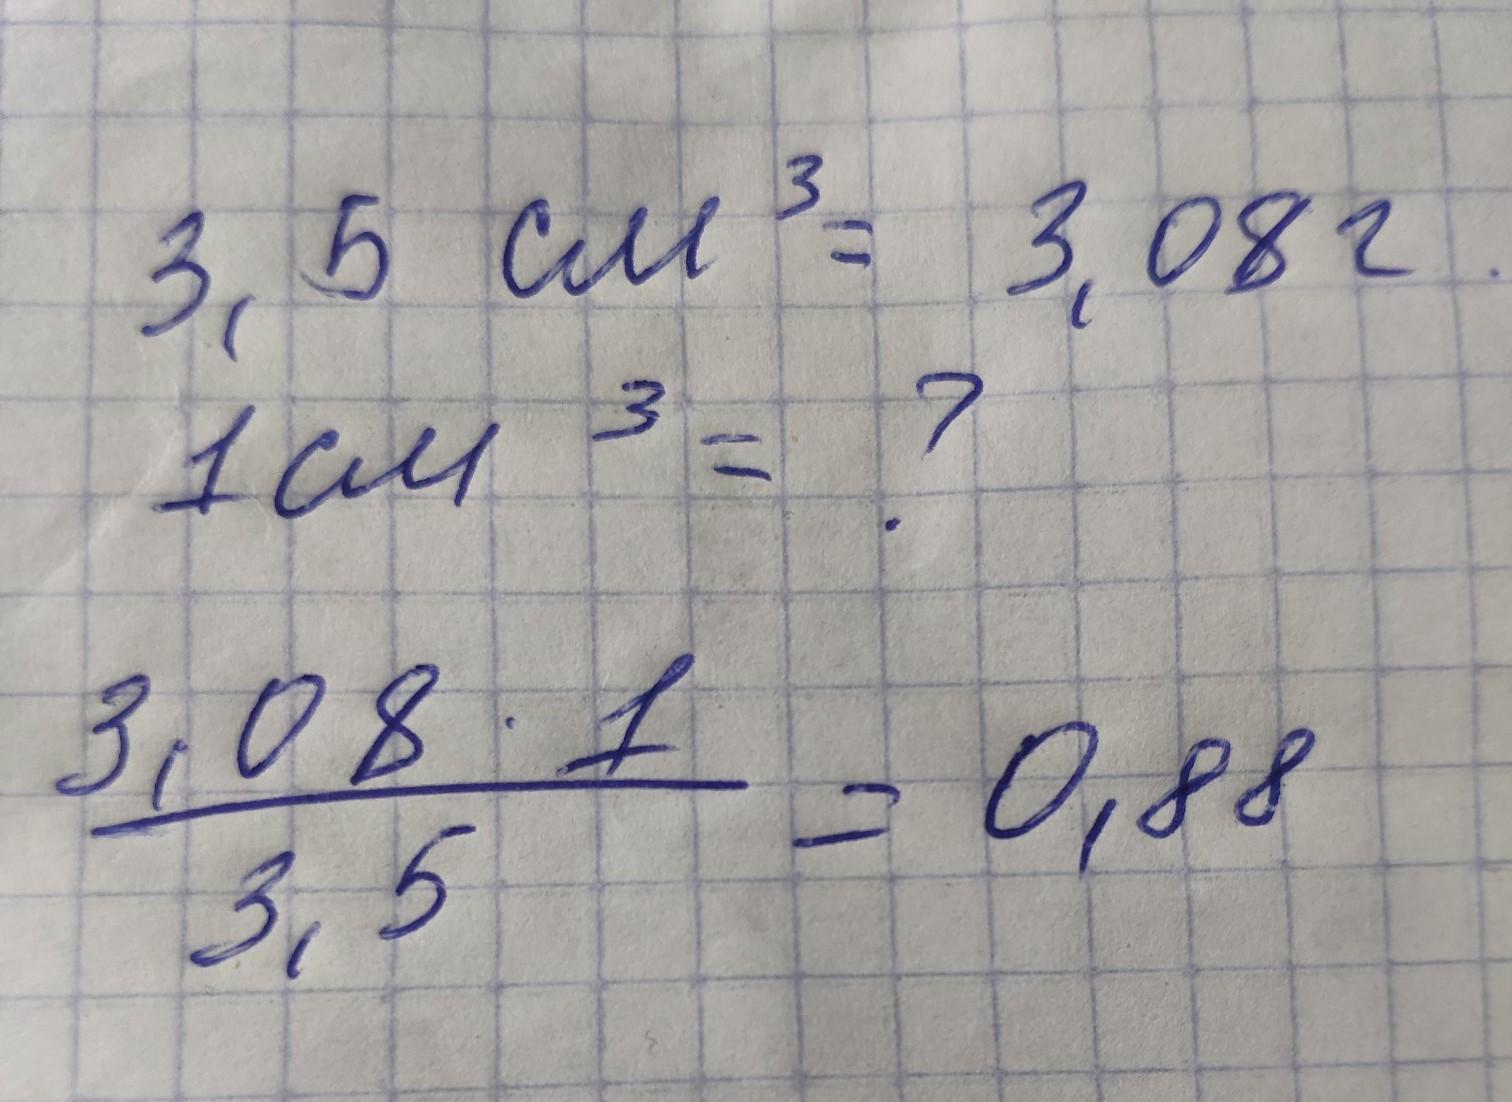 3,5 см³ = 3,08 г.
1 см³ = ?
3,08 · 1 / 3,5 = 0,88